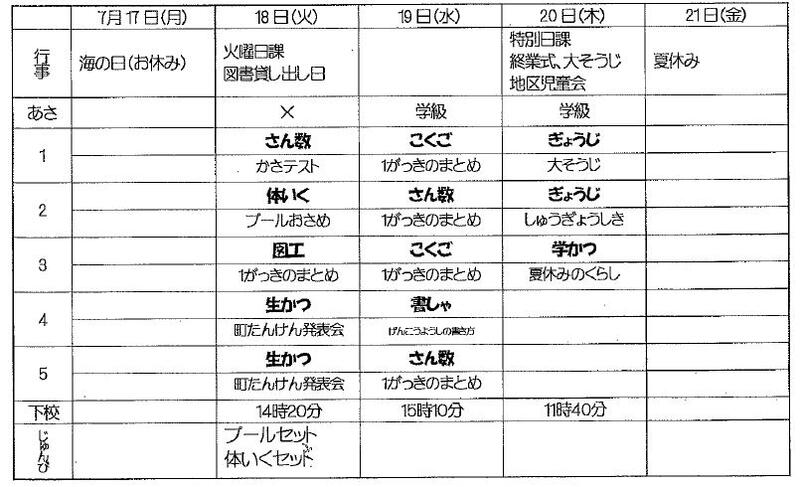 7月17日(月) 18日(火) 19日(水) 20日(木) 21日(金)
行事 海の日(お休み) 火曜日課 図書貸し出し日 特別日課 終業式、大そうじ 地区児童会 夏休み
あさ × 学級 学級
1 さん数 こくご ぎょうじ
かさテスト 1がっきのまとめ 大そうじ
2 体いく さん数 ぎょうじ
プールおさめ 1がっきのまとめ しゅうぎょうしき
3 図工 こくご 学かつ
1がっきのまとめ 1がっきのまとめ 夏休みのくらし
4 生かつ 書しゃ
町たんけん発表会 げんこうようしの書き方
5 生かつ さん数
町たんけん発表会 1がっきのまとめ
下校 14時20分 15時10分 11時40分
じゅんび プールセット
体いくセット